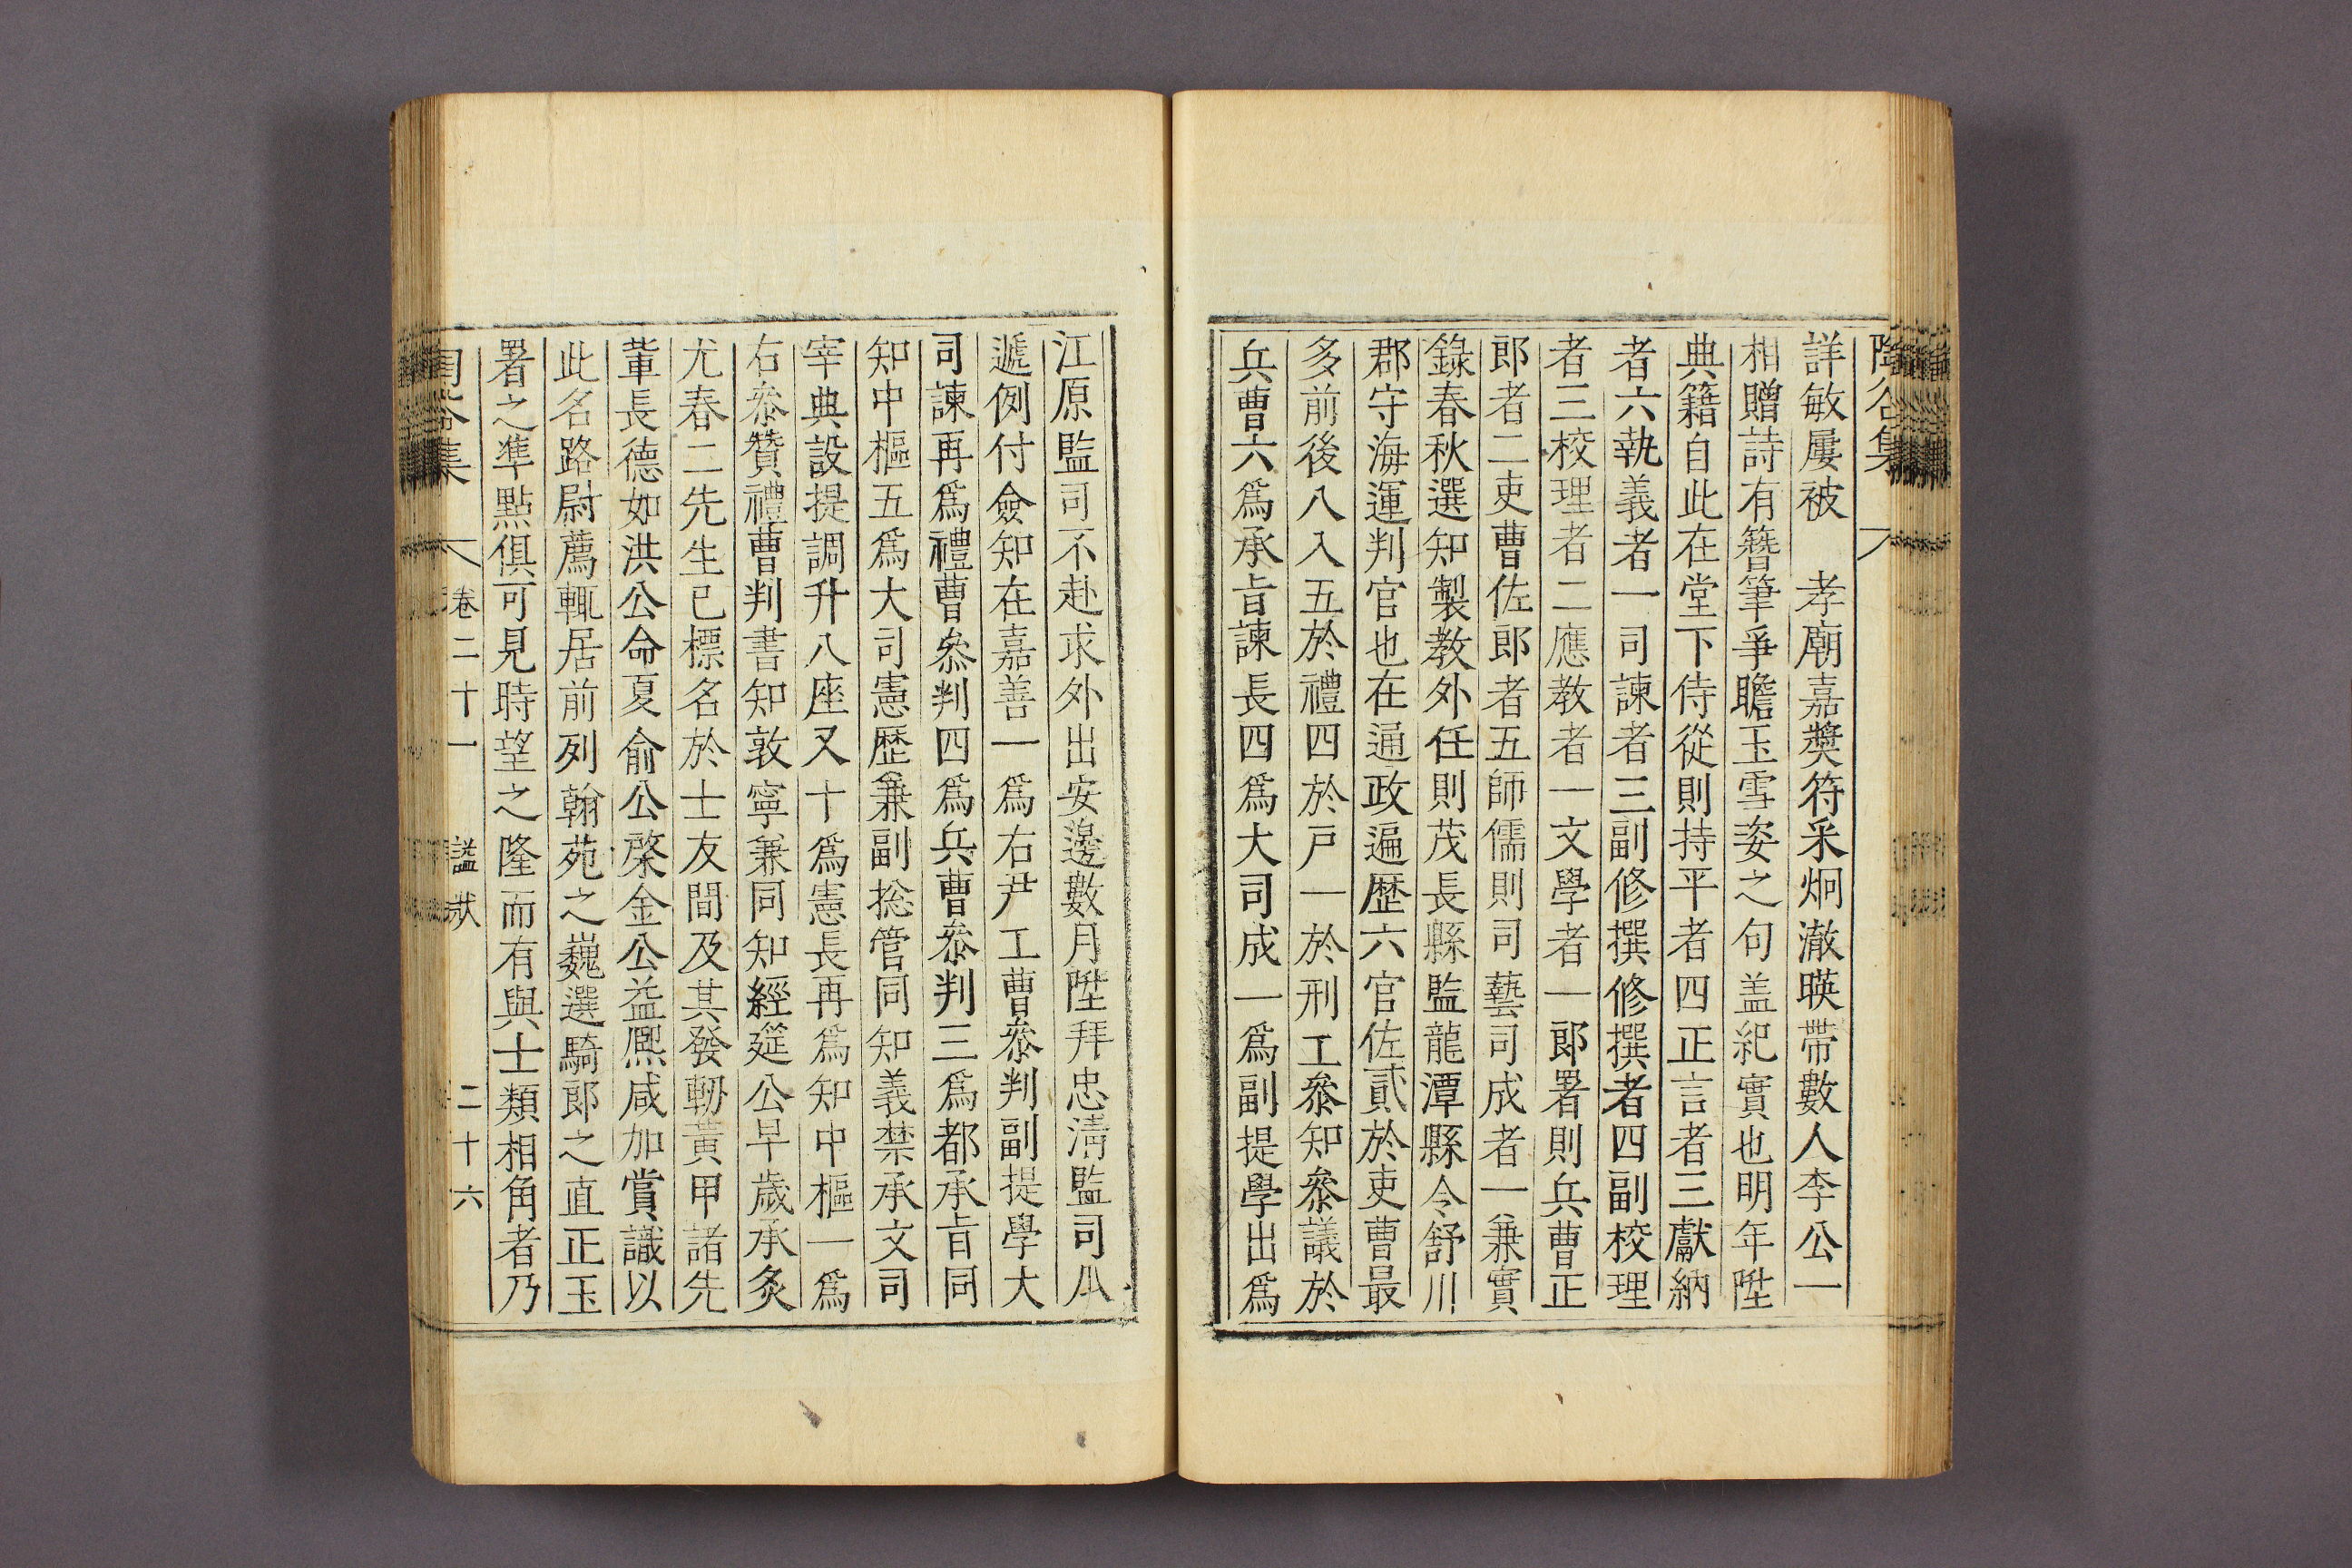 陶谷集
詳敏屢被 孝廟嘉獎符采炯澈暎帶數人李公一
相贈詩有簪筆爭瞻玉雪姿之句盖紀實也明年陞
典籍自此在堂下侍從則持平者四正言者三獻納
者六執義者一司諫者三副修撰修撰者四副校理
者三校理者二應教者一文學者一郞署則兵曹正
郎者二吏曹佐郎者五師儒則司藝司成者一兼實
錄春秋選知製教外任則茂長縣監龍潭縣令舒川
郡守海運判官也在通政遍歷六官佐貳於吏曹最
多前後八入五於禮四於戶一於刑工叅知叅議於
兵曹六爲承旨諫長四爲大司成一爲副提學出爲
江原監司不赴求外出安邊數月陞拜忠淸監司瓜
遞例付僉知在嘉善一爲右尹工曹叅判副提學大
司諫再爲禮曹叅判四爲兵曹叅判三爲都承旨同
知中樞五爲大司憲歷兼副捴管同知義禁承文司
宰典設提調升八座又十爲憲長再爲知中樞一爲
右叅贊禮曹判書知敦寧兼同知經筵公早歲承炙
尤春二先生已標名於士友間及其發軔黃甲諸先
輩長德如洪公命夏俞公棨金公益熙咸加賞識以
此名路尉薦輒居前列翰苑之巍選騎郎之直正玉
署之準點俱可見時望之隆而有與士類相角者乃
陶谷集 卷二十一 謚狀 二十六